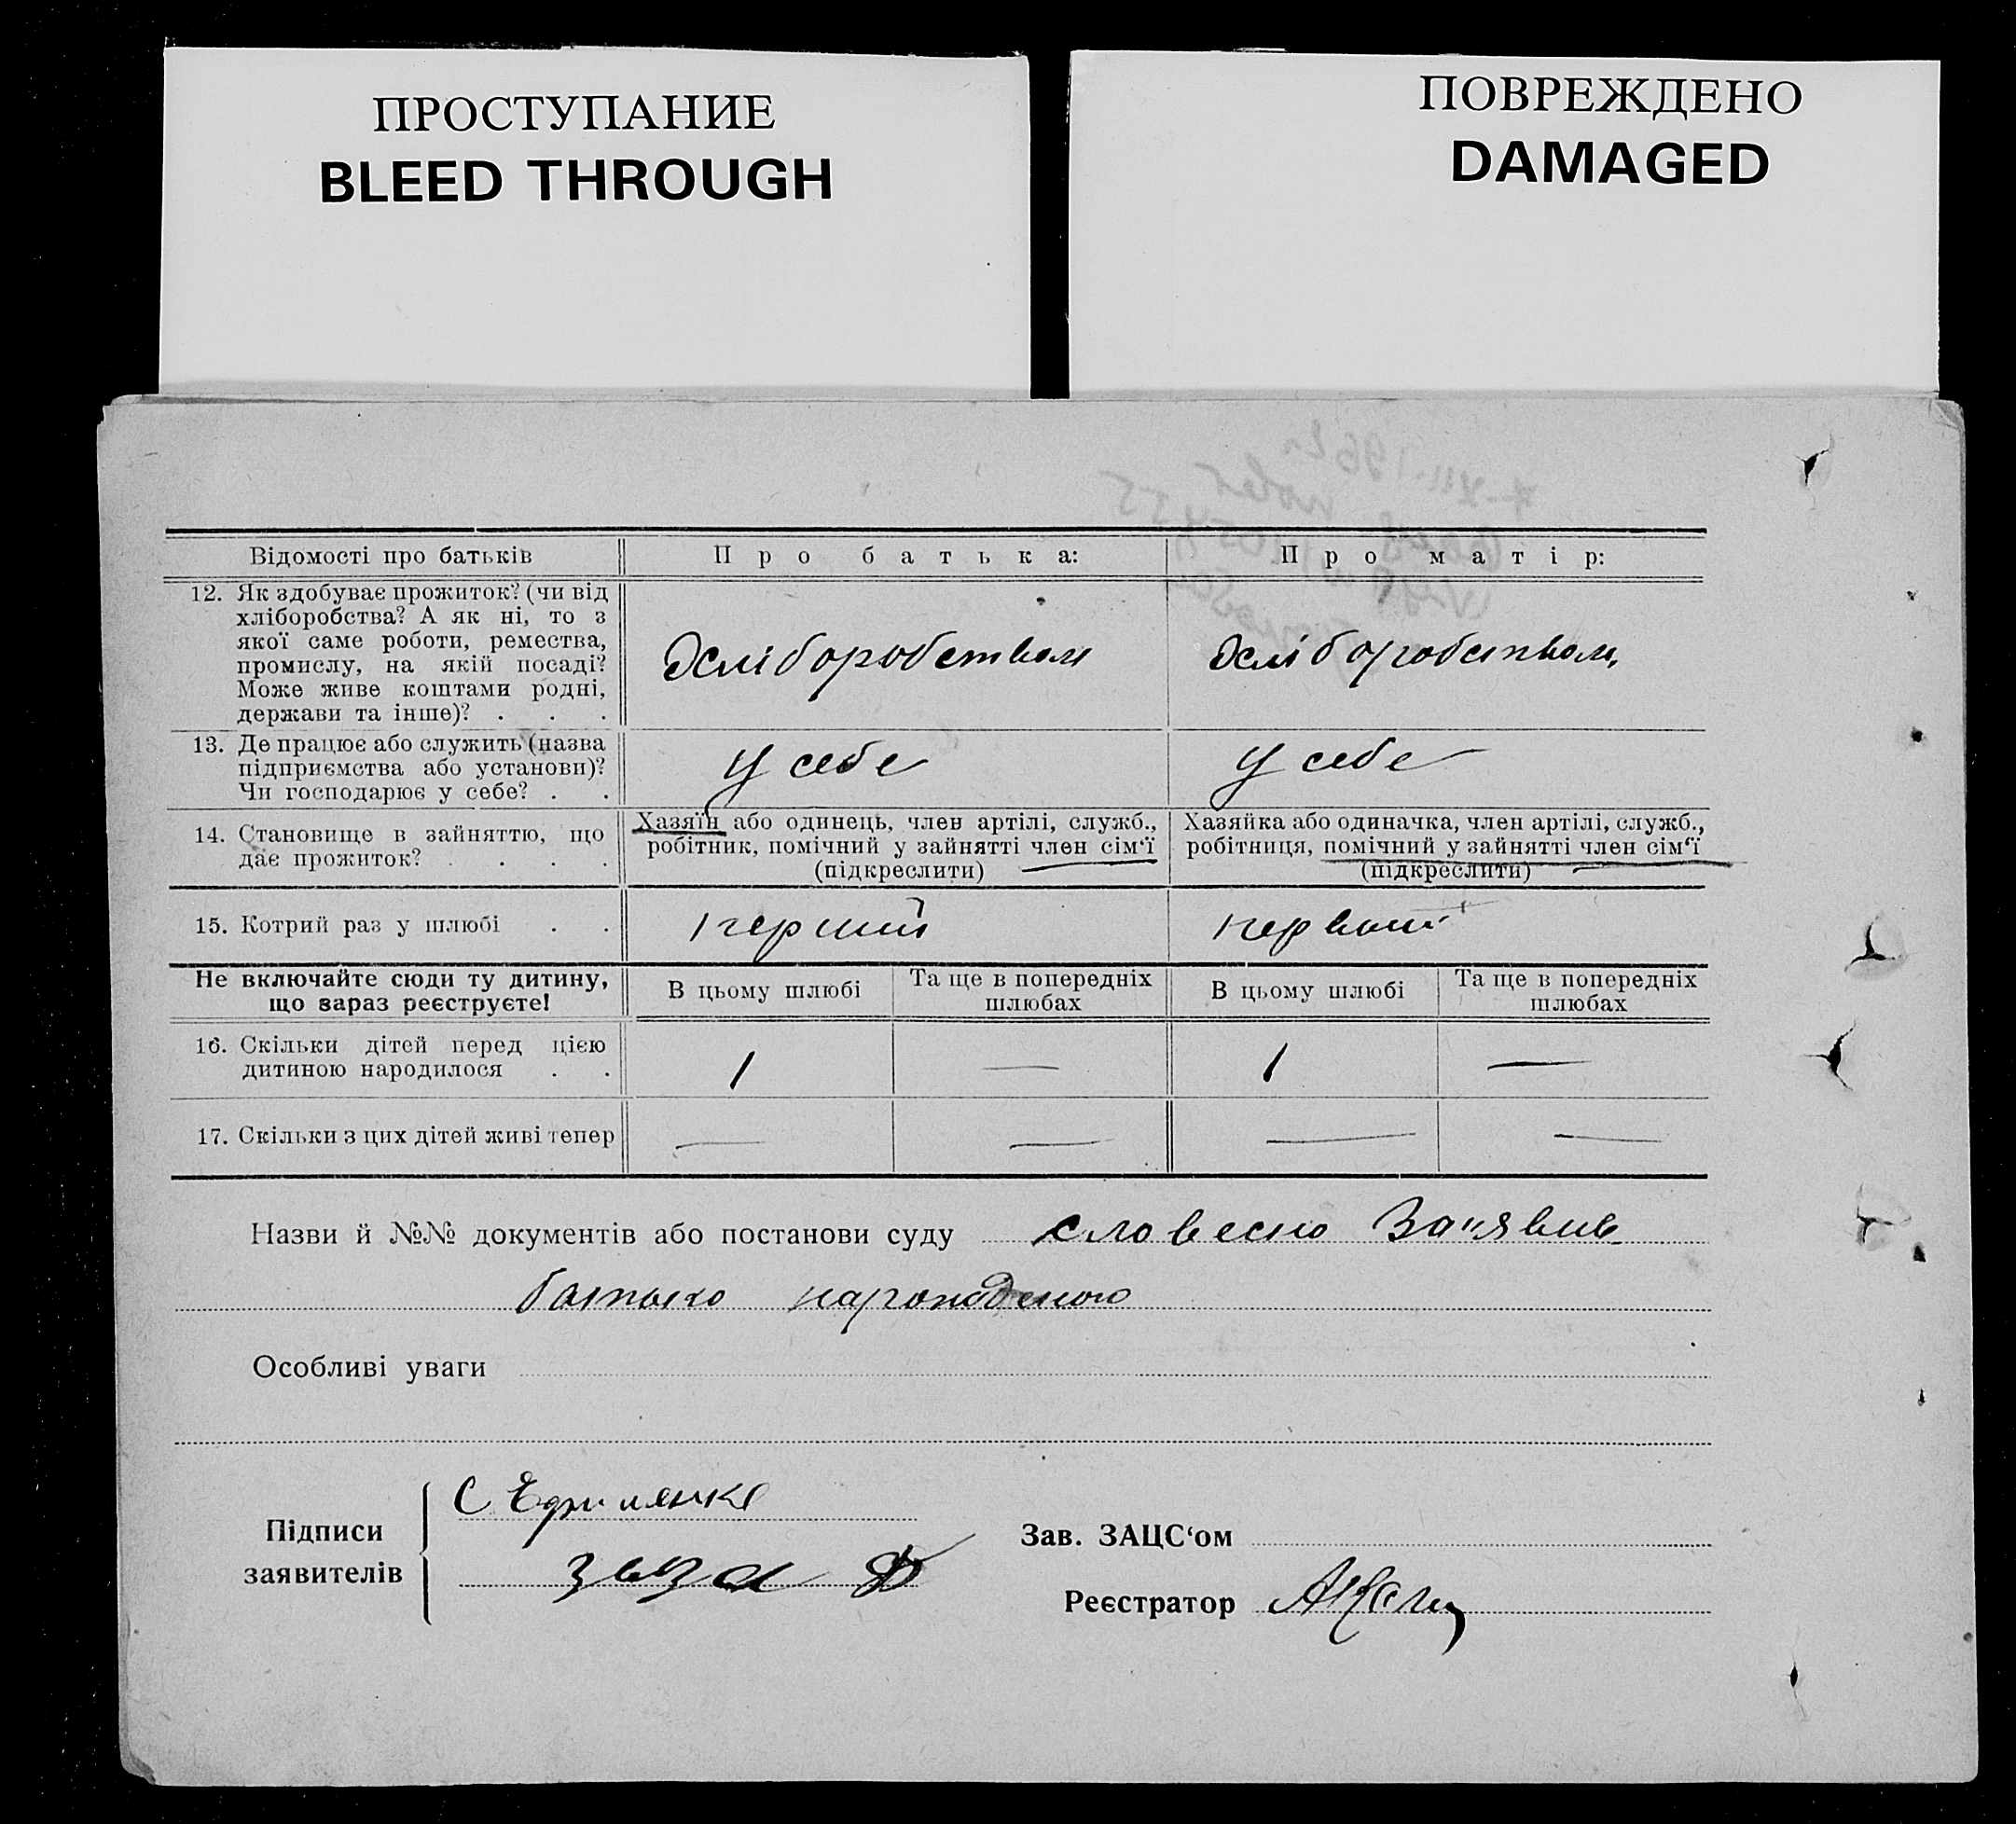 ПРОСТУПАНИЕ
BLEED THROUGH
ПОВРЕЖДЕНО
DAMAGED
Відомості про батьків
Про батька:
Про матір:
12. Як здобуває прожиток? (чи від
хліборобства? А як ні, то з
якої саме роботи, ремества,
промислу, на якій посаді?
Може живе коштами родні,
держави та інше)? . . .
Хліборобством
Хліборобством
13. Де працює або служить (назва
підприємства або установи)?
Чи господарює у себе? . .
У себе
У себе
14. Становище в зайняттю, що
дає прожиток? . . . .
Хазяїн або одинець, член артілі, служб.,
робітник, помічний у зайнятті член сім‘ї
(підкреслити)
Хазяйка або одиначка, член артілі, служб.,
робітниця, помічний у зайнятті член сім‘ї
(підкреслити)
15. Котрий раз у шлюбі . .
перший
первий
Не включайте сюди ту дитину,
що зараз реєструєте!
В цьому шлюбі
Та ще в попередніх
шлюбах
В цьому шлюбі
Та ще в попередніх
шлюбах
16. Скільки дітей перед цією
дитиною народилося . .
1
—
1
—
17. Скільки з цих дітей живі тепер
—
—
—
—
Назви й №№ документів або постанови суду словесно За"явив
батько
Особливі уваги
Підписи
заявителів
С
Зав. ЗАЦС‘ом
Реєстратор